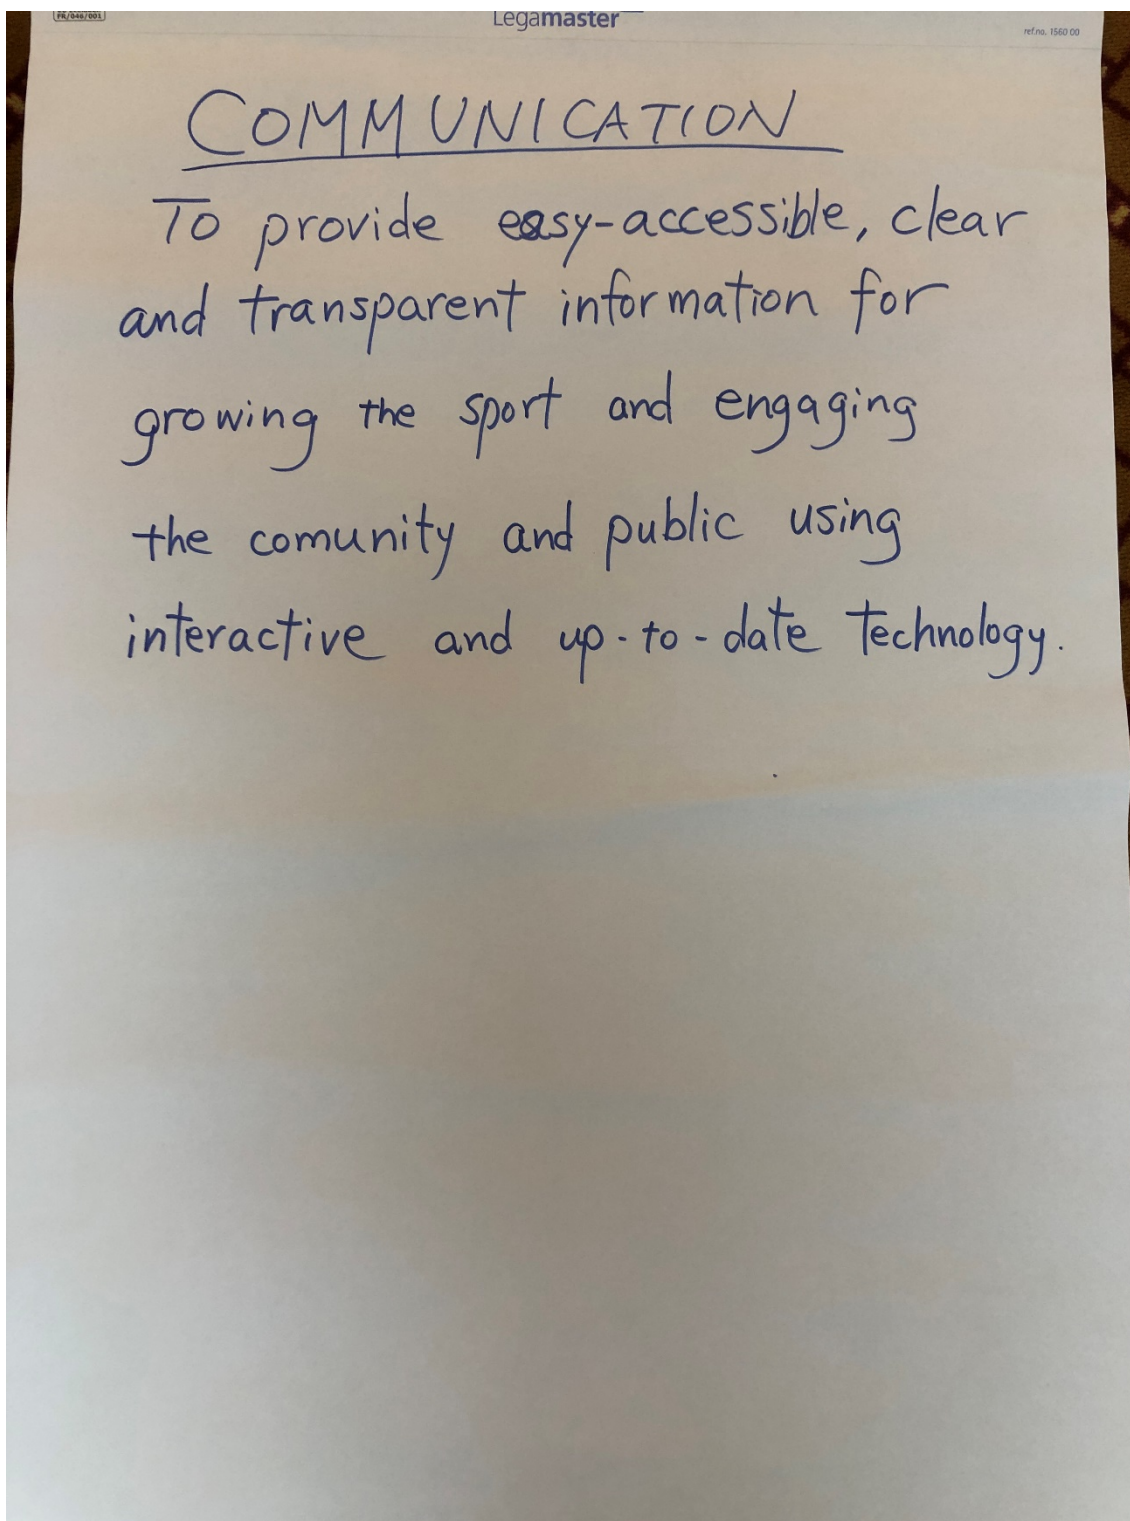 FR/046/001
Legamaster
ref.no. 1560 00
COMMUNICATION
To provide easy-accessible, clear
and transparent information for
growing the sport and engaging
the comunity and public using
interactive and up-to-date technology.